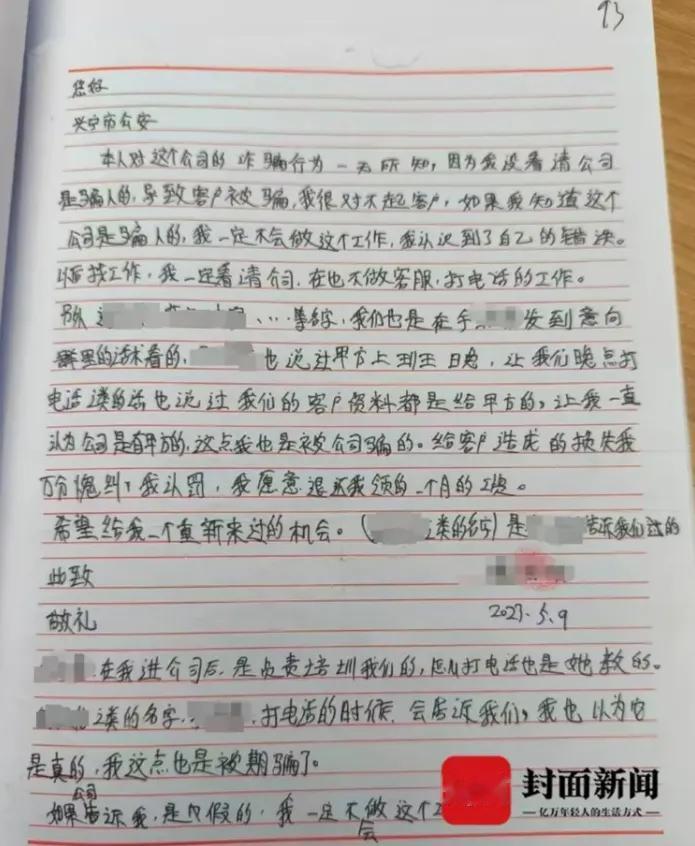 93
您好
兴宁市公安
本人对这个公司的诈骗行为一无所知，因为我没看请公司
是骗人的，导致客户被骗，我很对不起客户，如果我知道这个
公司是骗人的，我一定不会做这个工作，我认识到了自己的错误。
以后找工作，我一定看请公司，在也不做客服，打电话的工作。
等名字，我们也是在手 发到意向
群里的话术看的， 也说过甲方上到 让我们晚点打
电话之类的话也说过我们的客户资料都是给甲方的，让我一直
认为公司是有甲方的，这点我也是被公司骗的。给客户造成的损失我
万分愧纠，我认罚，我愿意退还我领的一个月的工资。
希望给我一个重新来过的机会。（ 之类的名字）是 告诉我们过的
此致
敬礼 2023.5.9
在我进公司后是负责培训我们的，怎么打电话也是她教的。
之类的名字， 打电话的时候，会告诉我们，我也认为它
是真的，我这点也是被期骗了。
如果公司告诉我，是 假的，我一定不会做这个工
封面新闻
亿万年轻人的生活方式